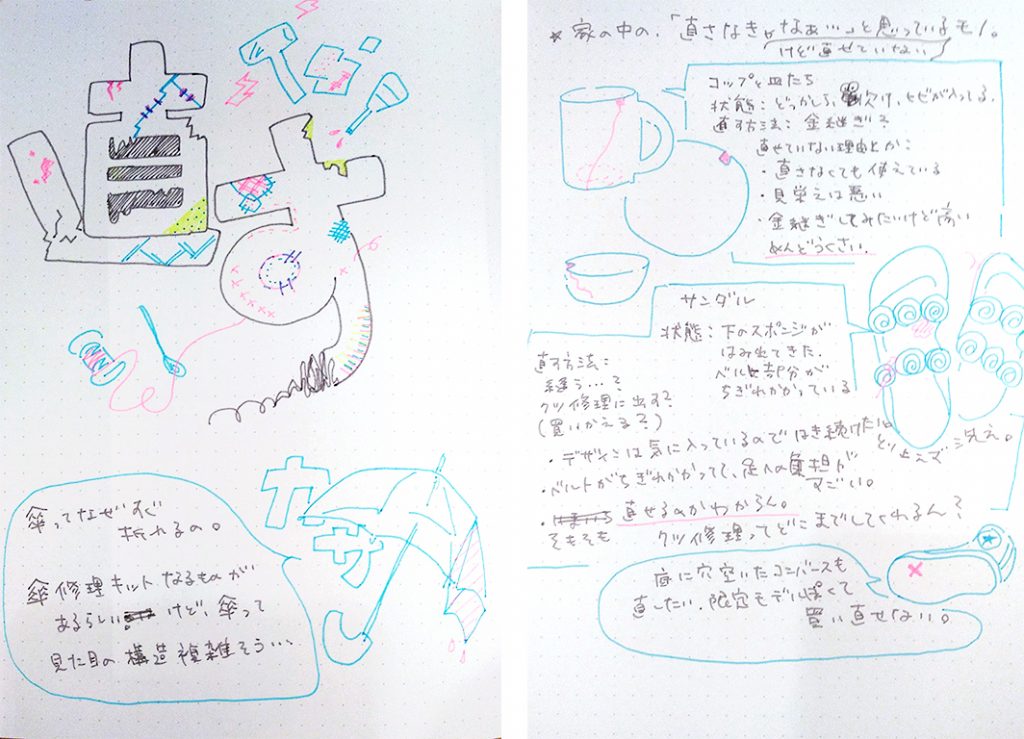 直す
カサ
傘ってなぜすぐ
折れるの。
傘修理キットなるものが
あるらしい けど、傘って
見た目の構造複雑そう…
* 家の中の、「直さなきゃなぁ…」と思っているモノ。
けど直せていない
コップと皿たち
状態:どっかしら、欠け、ヒビが入ってる。
直す方法:金継ぎ?
直せていない理由とか:
・直さなくても使えている
・見栄えは悪い
・金継ぎしてみたいけど高い
めんどうくさい。
サンダル
状態:下のスポンジが
はみ出てきた。
ベルト部分が
ちぎれかかっている
直す方法:
縫う…?
クツ修理に出す?
(買いかえる?)
・デザインは気に入っているのではき続けたい
とりあえず洗え。
・ベルトがちぎれかかってて、足への負担が
すごい。
・そもそも 直せるのかわからん。
クツ修理ってどこまでしてくれるん?
底に穴空いたコンバースも
直したい。限定モデルぽくて
買い直せない。